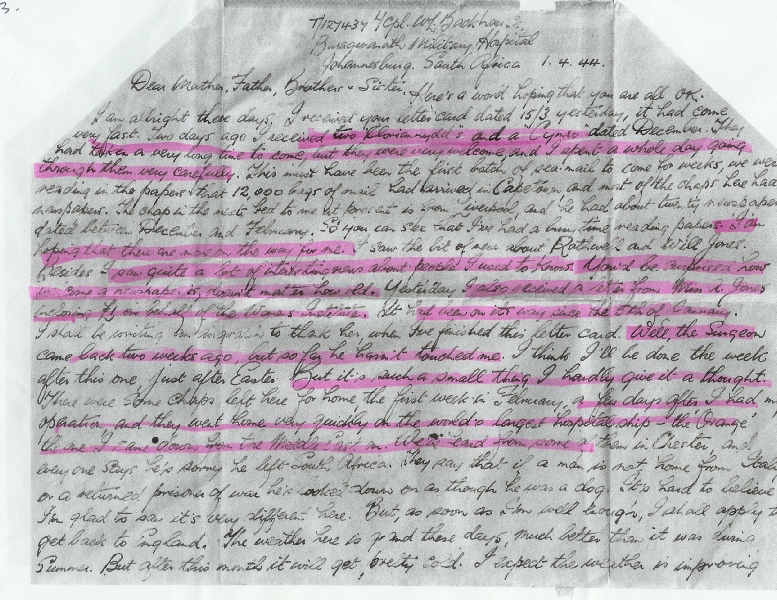 3.
T/127437 L/Cpl. W.L. Backhouse.
Baragwanath Military Hospital
Johannesburg. South Africa 1.4.44.
Dear Mother, Father, Brother & Sister. Here's a word hoping that you are all OK.
I am alright these days, I received your letter card dated 15/3 yesterday, it had come
very fast. Two days ago I received two and a Cymro dated December. They
had taken a very long time to come, but they were very welcome, and I spent a whole day going
through them very carefully. This must have been the first batch of sea-mail to come for weeks, we were
reading in the papers that 12,000 bags of mail had arrived in Cape Town and most of the chaps here had
newspapers. The chap in the next bed to me at present is from Liverpool, and he had about twenty newspapers
dated between December and February. So you can see that I've had a busy time reading papers. I am
hoping that there are more on the way for me. I saw the bit of news about Rothwell and Will Jones.
Besides I saw quite a lot of interesting news about people I used to know. You'd be surprised how
welcome a newspaper is, doesn't matter how old. Yesterday I also received a letter from Miss Jones
inclosing on behalf of the Womans Institute. It had been on it's way since the 5th of January.
I shall be writing to thank her, when I've finished this letter card. Well, the Surgeon
came back two weeks ago, but so far he hasn't touched me. I think I'll be done the week
after this one, just after Easter. But it is such a small thing I hardly give it a thought.
There were some chaps left here for home the first week in February, a few days after I had my
operation and they went home very quickly on the world's largest hospital ship - the 'Oranje'
the one I came down from the Middle East on. We've heard from some of them in Chester, and
every one says he's sorry he left South Africa. They say that if a man is not home from Italy
or a returned prisoner of war he's looked down on as though he was a dog. It's hard to believe
I'm glad to say it's very different here. But, as soon as I'm well enough, I shall apply to
get back to England. The weather here is grand these days, much better than it was during
Summer. But after this month it will get pretty cold. I expect the weather is improving